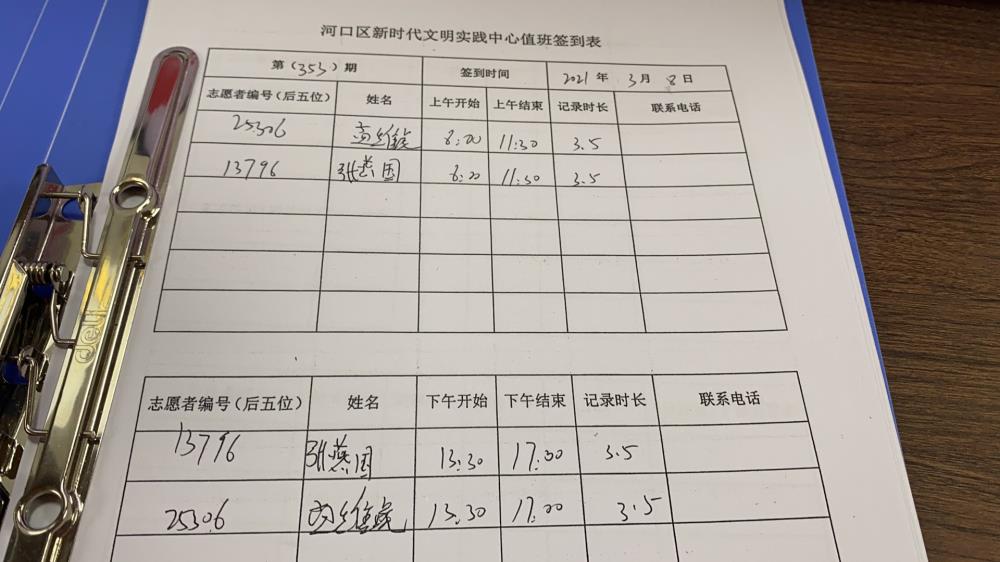 河口区新时代文明实践中心值班签到表
第(353)期 签到时间 2021年 3月 8日
志愿者编号(后五位) 姓名 上午开始 上午结束 记录时长 联系电话
25306 8:00 11:30 3.5
13796 张燕国 8:00 11:30 3.5
志愿者编号(后五位) 姓名 下午开始 下午结束 记录时长 联系电话
13796 张燕国 13:30 17:00 3.5
25306 13:30 17:00 3.5
deli